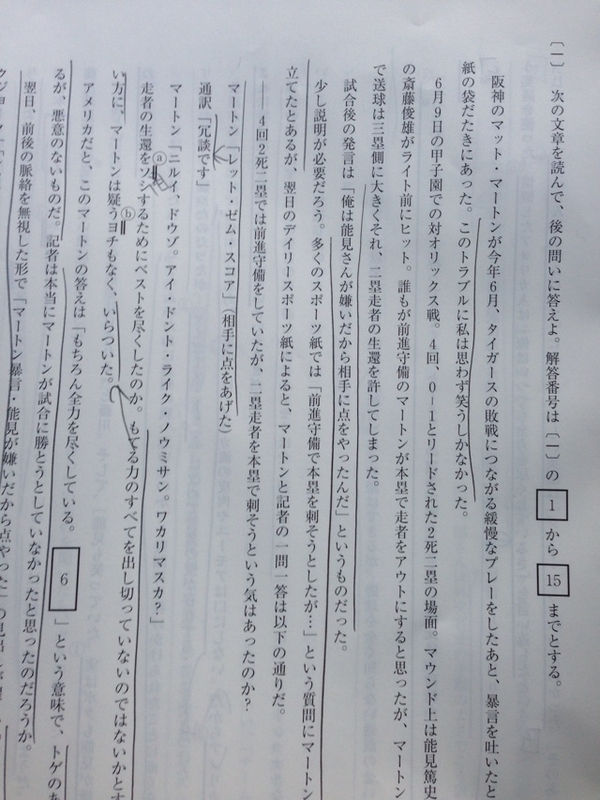 〔一〕 次の文章を読んで、後の問いに答えよ。解答番号は〔一〕の 1 から 15 までとする。
阪神のマット・マートンが今年6月、タイガースの敗戦につながる緩慢なプレーをしたあと、暴言を吐いたと
紙の袋だたきにあった。このトラブルに私は思わず笑うしかなかった。
6月9日の甲子園での対オリックス戦。4回、0-1とリードされた2死二塁の場面。マウンド上は能見篤史
の斎藤俊雄がライト前にヒット。誰もが前進守備のマートンが本塁で走者をアウトにすると思ったが、マートン
で送球は三塁側に大きくそれ、二塁走者の生還を許してしまった。
試合後の発言は「俺は能見さんが嫌いだから相手に点をやったんだ」というものだった。
少し説明が必要だろう。多くのスポーツ紙では「前進守備で本塁を刺そうとしたが…」という質問にマートン
立てたとあるが、翌日のデイリースポーツ紙によると、マートンと記者の一問一答は以下の通りだ。
―― 4回2死二塁では前進守備をしていたが、二塁走者を本塁で刺そうという気はあったのか?
マートン「レット・ゼム・スコア」(相手に点をあげた)
通訳「冗談です」
マートン「ニルイ、ドウゾ。アイ・ドント・ライク・ノウミサン。ワカリマスカ?」
走者の生還をソシするためにベストを尽くしたのか。もてる力のすべてを出し切っていないのではないかとす
い方に、マートンは疑うヨチもなく、いらついた。
ⓐ
ⓑ
アメリカだと、このマートンの答えは「もちろん全力を尽くしている。 6 」という意味で、トゲのあ
るが、悪意のないものだ。記者は本当にマートンが試合に勝とうとしていなかったと思ったのだろうか。
翌日、前後の脈絡を無視した形で「マートン暴言・能見が嫌いだから点やった」の見出しが